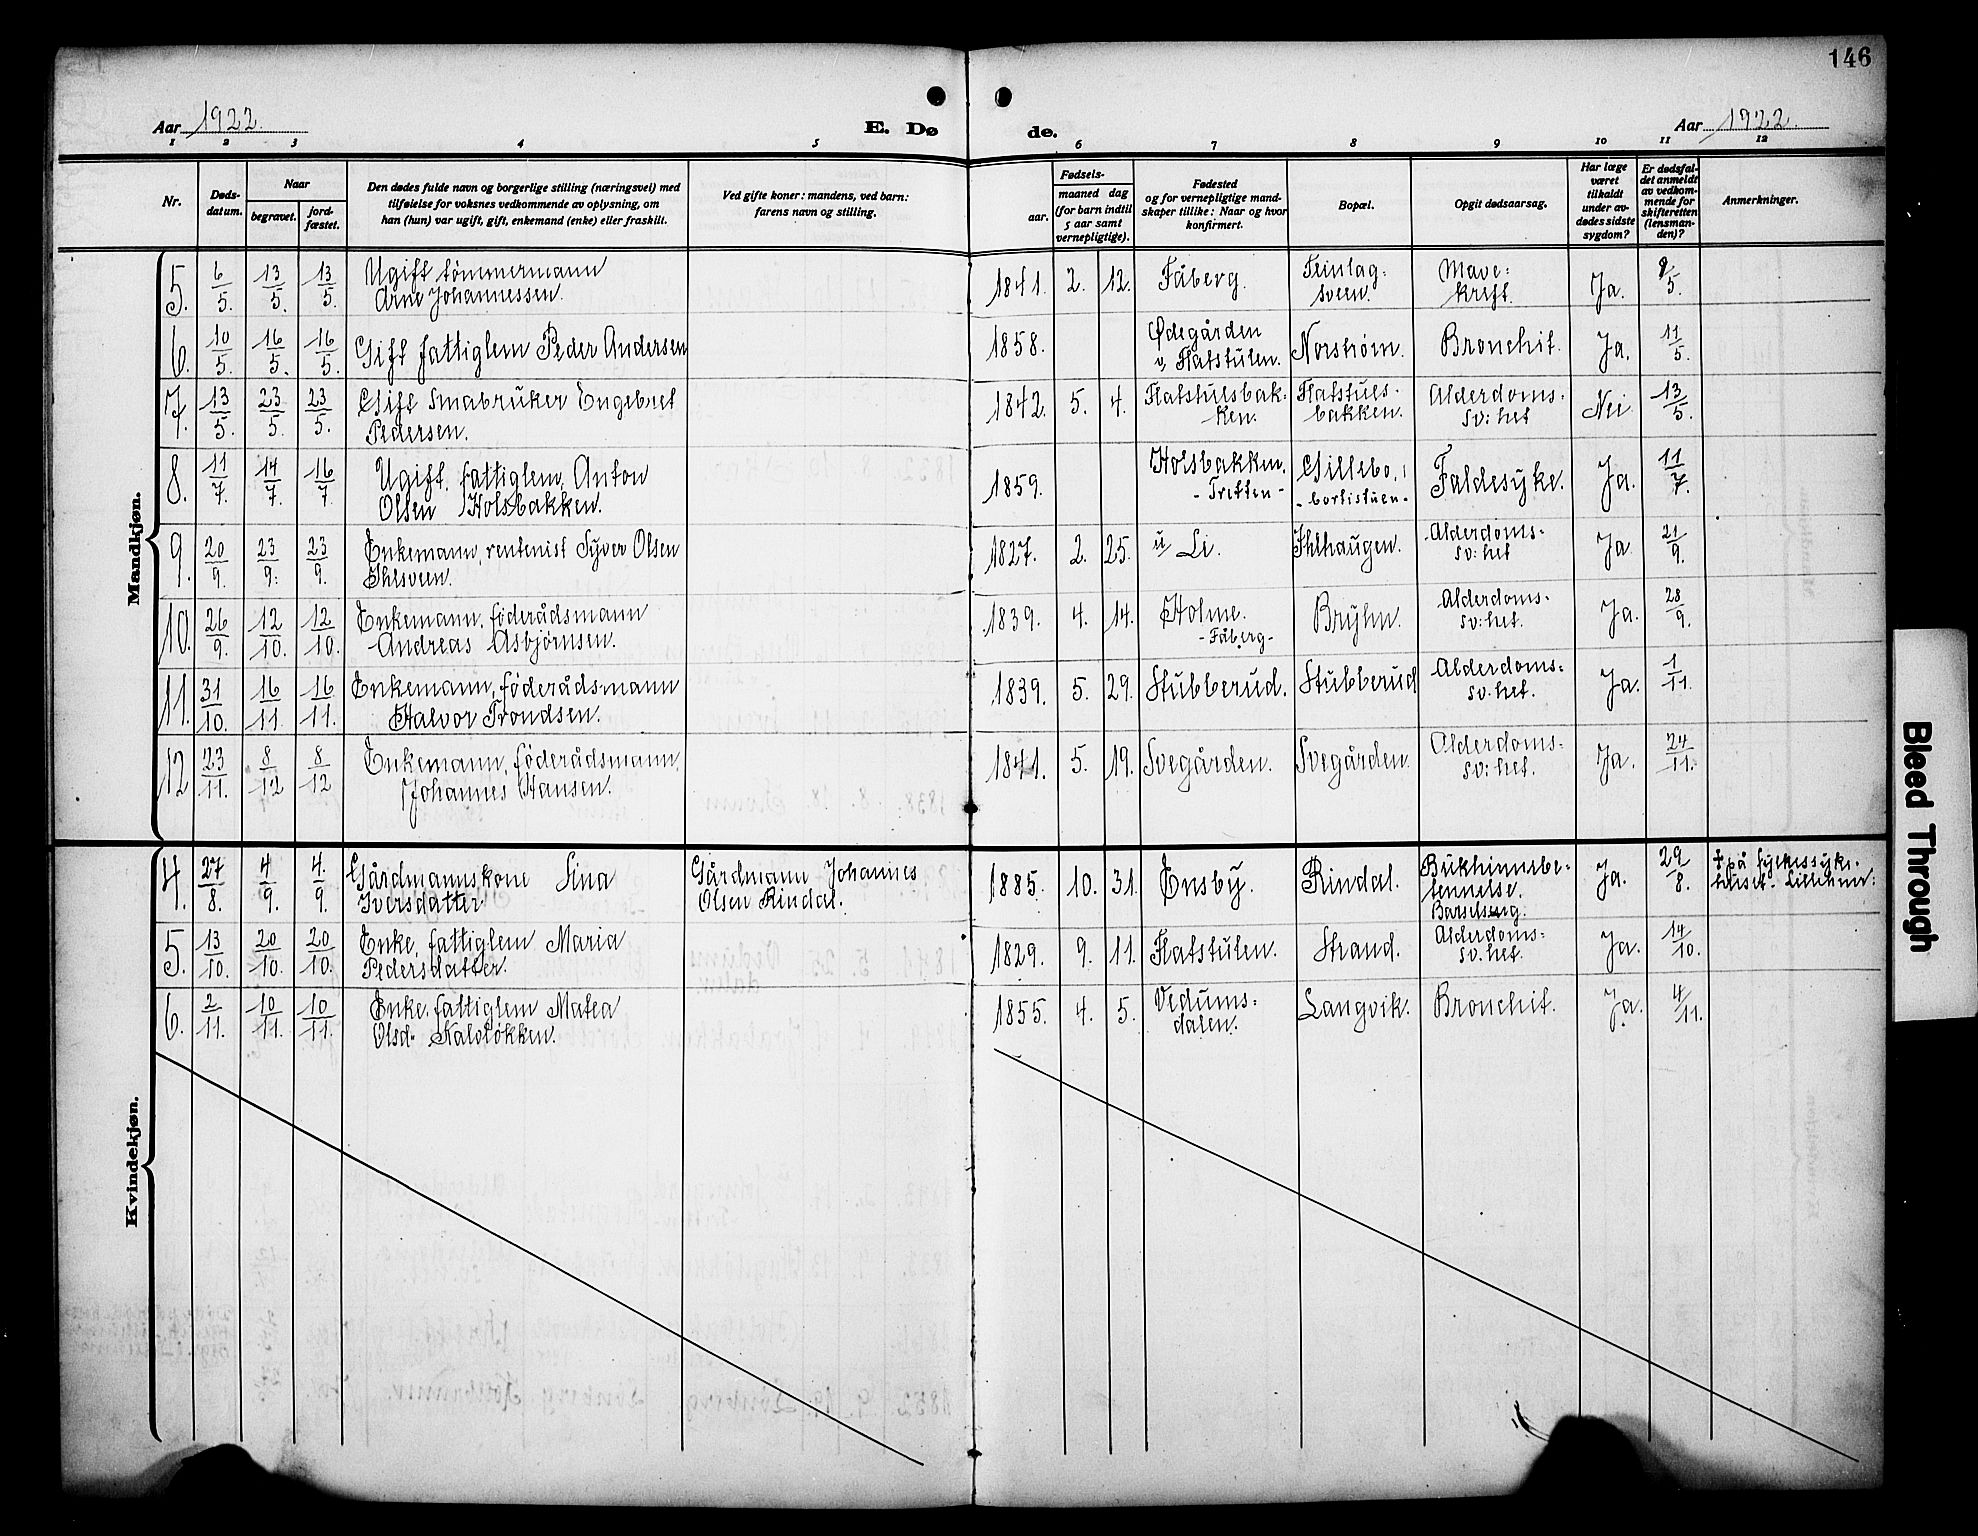 146
Aar 1922.
E. Dø
de.
Aar 1922.
1 2 3 4 5 6 7 8 9 10 11 12
Nr.
Døds-
datum.
Naar
begravet.
jord-
fæstet.
Den dødes fulde navn og borgerlige stilling (næringsvei) med
tilføielse for voksnes vedkommende av oplysning, om
han (hun) var ugift, gift, enkemand (enke) eller fraskilt.
Ved gifte koner: mandens, ved barn:
farens navn og stilling.
Fødsels-
aar.
maaned dag
(for barn indtil
5 aar samt
vernepligtige).
Fødested
og for vernepligtige mand-
skaper tillike: Naar og hvor
konfirmert.
Bopæl.
Opgit dødsaarsag.
Har læge
været
tilkaldt
under av-
dødes sidste
sygdom?
Er dødsfal-
det anmeldt
av vedkom-
mende for
skifteretten
(lensman-
den)?
Anmerkninger.
Mandkjøn.
5. 6/5. 13/5. 13/5. Ugift tömmermann
Arne Johannessen.
1841. 2. 12. Fåberg.
Mave-
kreft.
Ja. 9/5.
6. 10/5. 16/5. 16/5. Gift fattiglem Peder Andersen
1858. Ødegården
u/ Flatstulen.
Norstrøm. Bronchit. Ja. 11/5.
7. 13/5. 23/5. 23/5. Gift Småbruker Engebret
Pedersen.
1842. 5. 4. Flatstulsbak-
ken.
Flatstuls-
bakken.
Alderdoms-
sv:het
Nei 13/5.
8. 11/7. 14/7. 16/7. Ugift, fattiglem, Anton
Olsen Holsbakken.
1859. Holsbakken.
- Tretten -
Faldesyke. Ja. 11/7.
9. 20/9. 23/9. 23/9. Enkemann, rentenist Syver Olsen
Ihlsveen.
1827. 2. 25. u/ Li. Ihlhaugen. Alderdoms-
sv:het
Ja 21/9.
10. 26/9. 12/10. 12/10. Enkemann, föderådsmann
Andreas Asbjörnsen.
1839. 4. 14. Holme.
- Fåberg -
Bryhn. Alderdoms-
sv:het.
Ja. 28/9.
11. 31/10. 16/11. 16/11. Enkemann, föderådsmann
Halvor Trondsen.
1839. 5. 29. Stubberud. Stubberud Alderdoms-
sv:het.
Ja. 1/11.
12 23/11. 8/12 8/12 Enkemann, föderådsmann,
Johannes Hansen.
1841. 5. 19. Svegården. Svegården. Alderdoms-
sv:het.
Ja. 24/11.
Kvindekjøn.
4. 27/8. 4/9. 4/9. Gårdmannskone Sina
Iversdatter
Gårdmann Johannes
Olsen Rindal.
1885. 10. 31. Ensby. Rindal. Bukhinnebe-
tennelse.
Barselseng.
Ja. 29/8. + på fylkessyke-
huset. Lillehmr:
5. 13/10. 20/10. 20/10. Enke, fattiglem Maria
Pedersdatter.
1829. 9. 11. Flatstulen. Strand. Alderdoms-
sv:het.
Ja. 14/10.
6. 2/11. 10/11. 10/11. Enke, fattiglem Matea
Olsd. Kalvløkken.
1855. 4. 5. Vedums-
dalen.
Langvik. Bronchit. Ja. 4/11.
Bleed Through